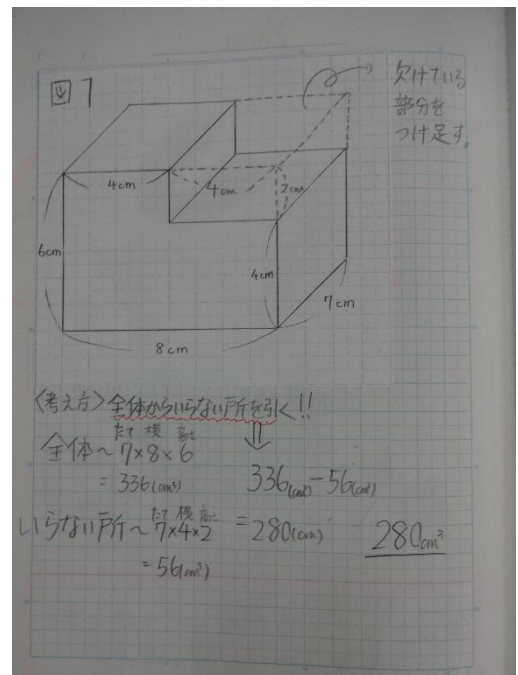 図1
欠けている
部分を
つけ足す。
4cm
4cm
2cm
6cm
4cm
7cm
8cm
〈考え方〉全体からいらない所を引く!!
たて 横 高さ
全体~7×8×6
=336(cm³)
336(cm³)-56(cm³)
たて 横 高さ
いらない所~7×4×2
=280(cm³)
280cm³
=56(cm³)